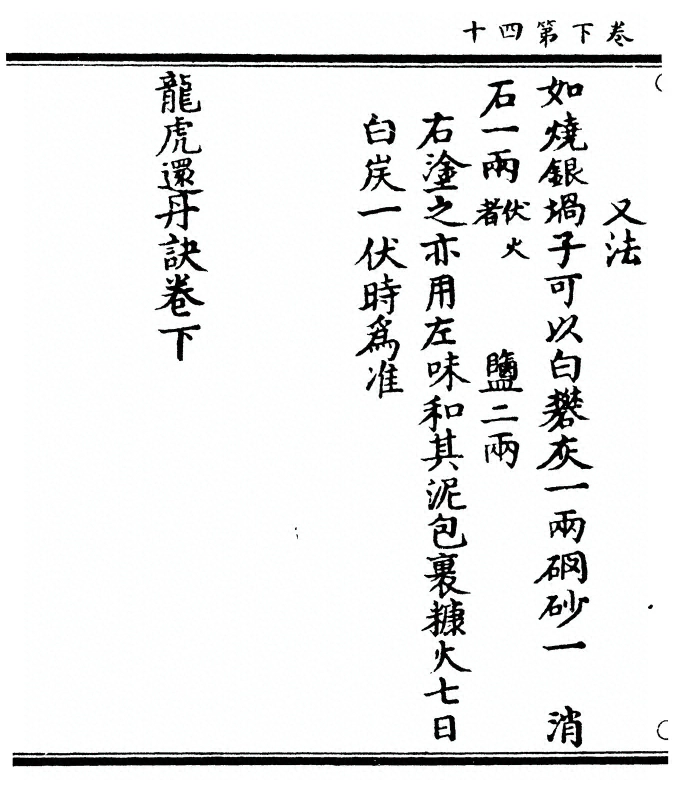 卷下第四十
又法
如燒銀堝子可以白礬灰一兩硇砂一 消
石一兩伏火者 鹽二兩
右塗之亦用左味和其泥包裹糠火七日
白炭一伏時爲准
龍虎還丹訣卷下